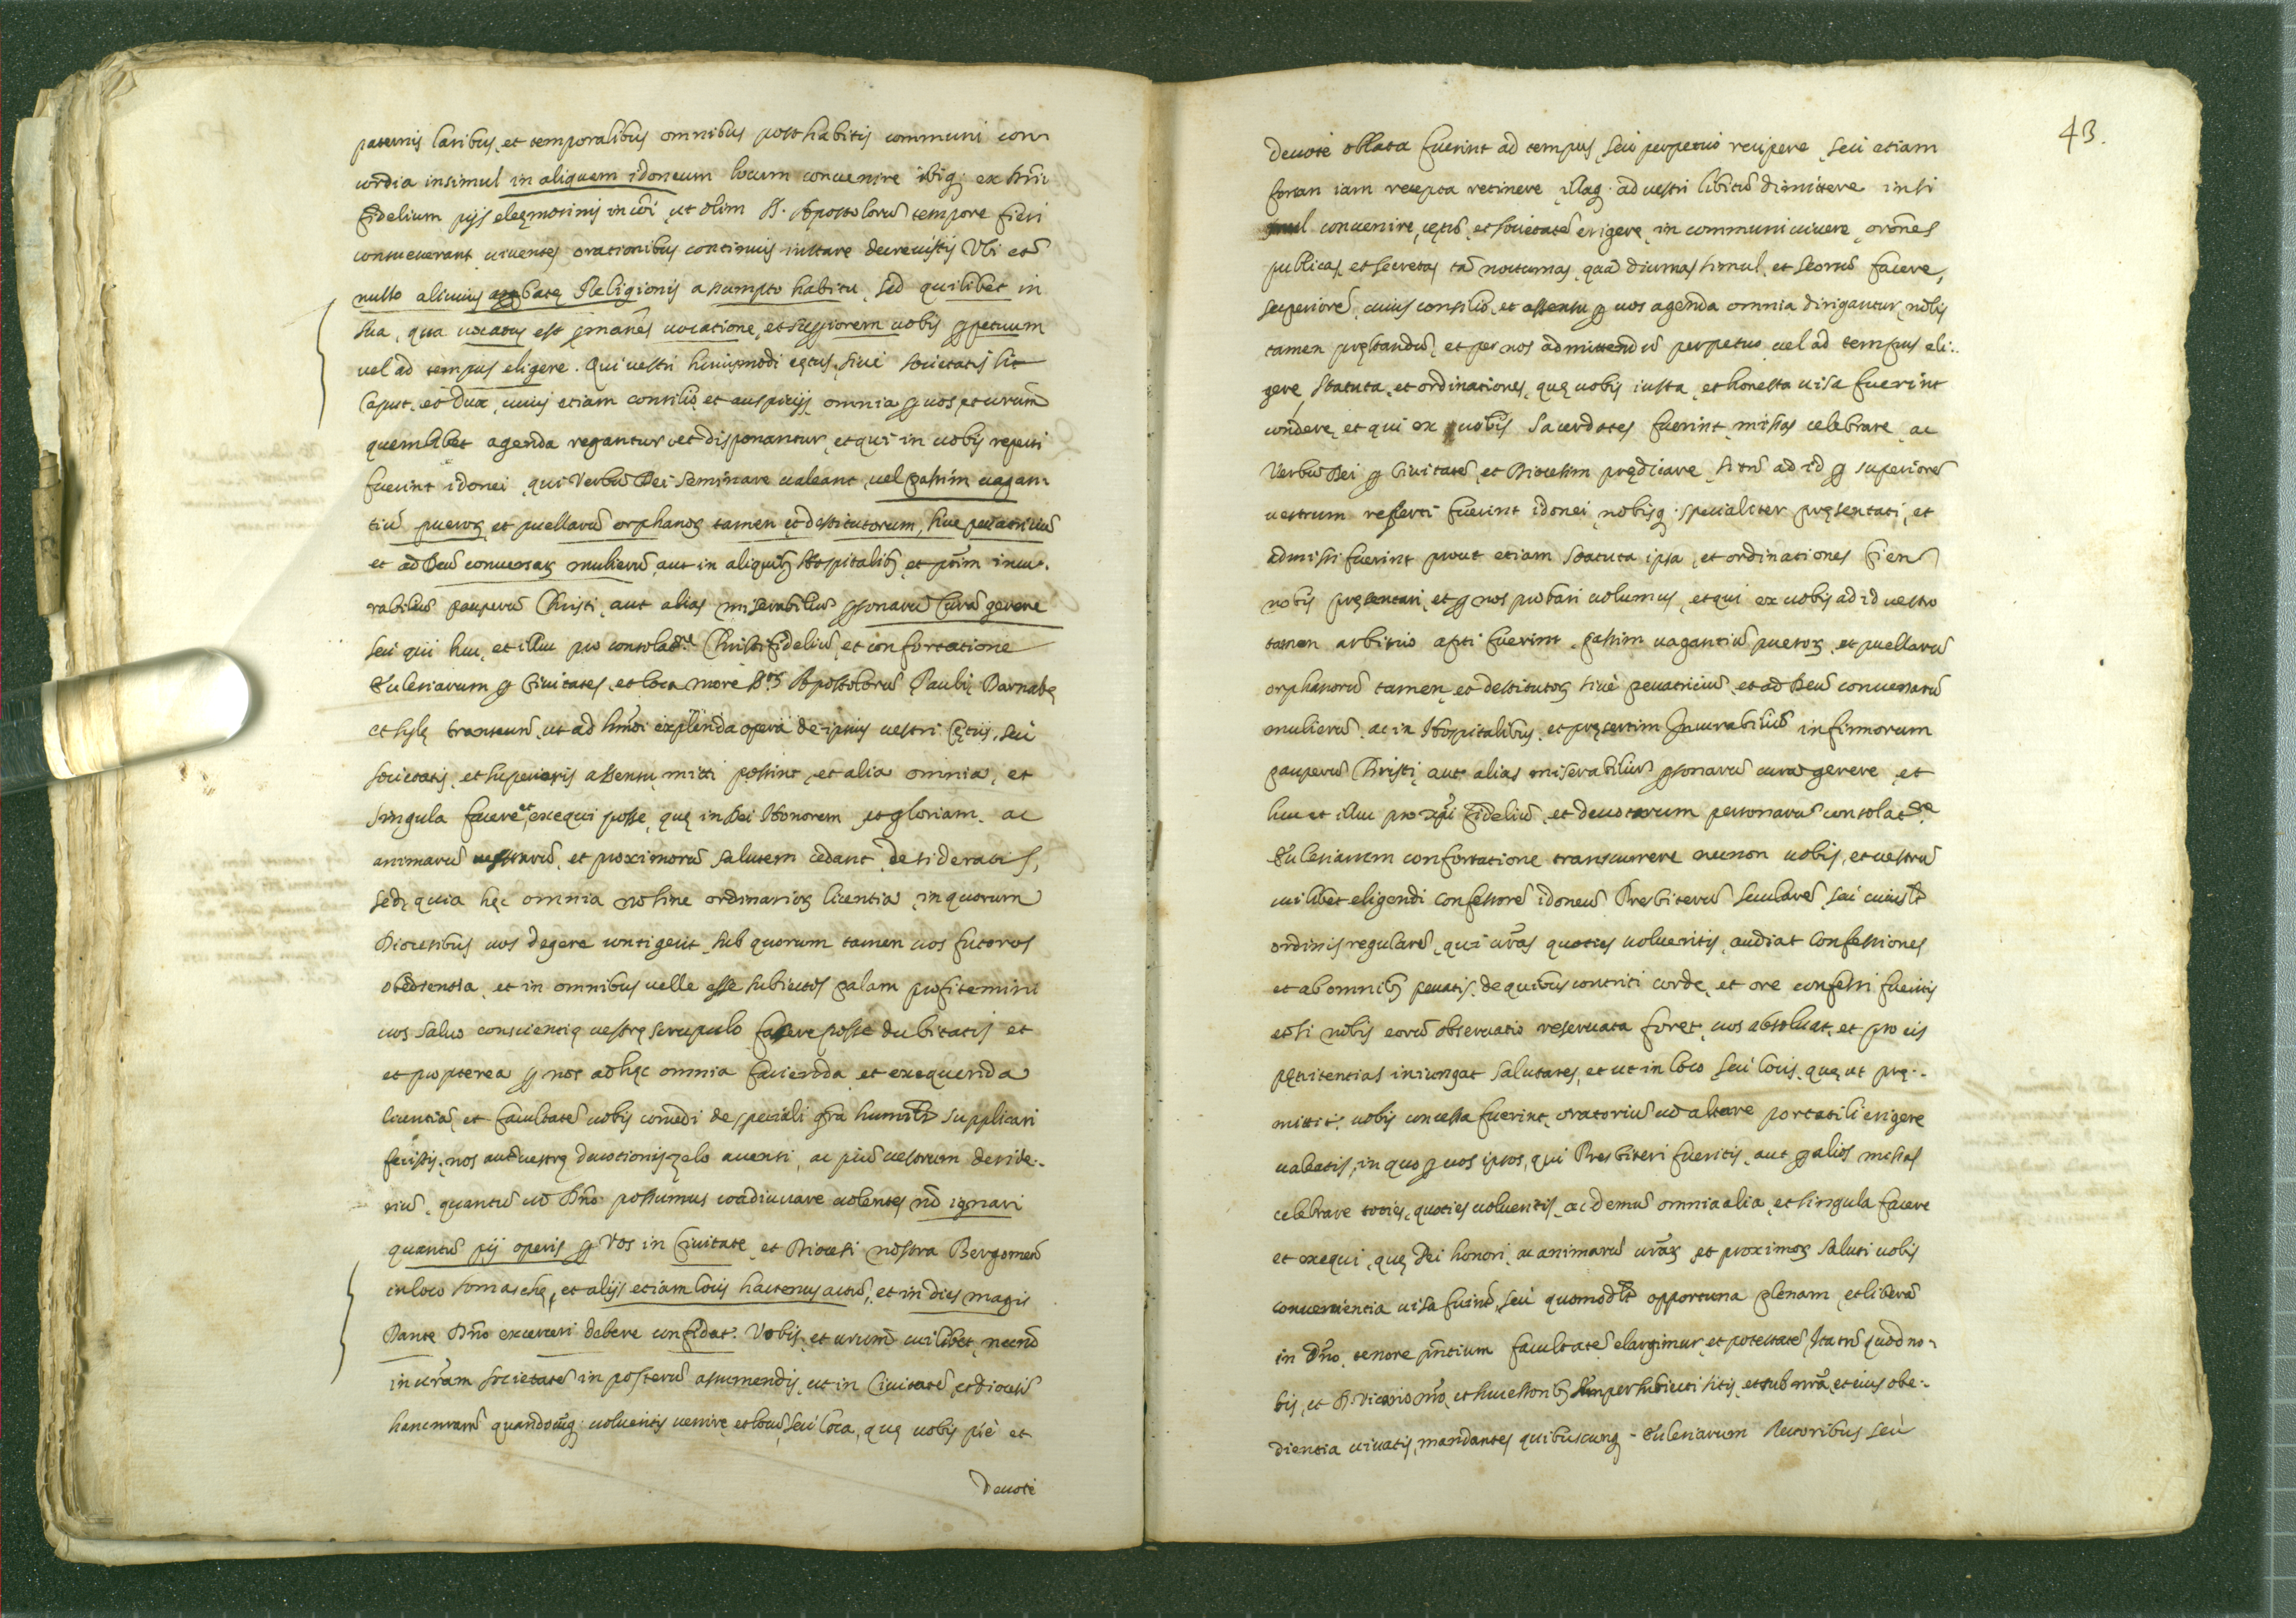 paternis laribus, et temporalibus omnibus posthabitis communi con-
cordia insimul in aliquem idoneum locum convenire ibiq; ex Xpi
fidelium pijs elęmosinis in cōi, ut olim SS. Apostolorū tempore fieri
consueverant viventes orationibus continuis instare decrevistis Ubi etiā
nullo alicuius Religionis assumpto habitu, sed quilibet in
sua, qua vocatus est ꝑmanēs vocatione, et supiorem vobis ꝑpetuum
vel ad tempus eligere. Qui vestri huiusmodi cętus, sivè societatis sit
Caput, et dux, cuius etiam consilio, et auspicijs omnia ꝑ vos, et vrūm
quemlibet agenda regantur, et disponantur, et qui in vobis reperti
fuerint idonei, qui Verbū Dei seminare valeant, vel passim vagan-
tiū pueroꝝ et puellarū orphanoꝝ tamen, et destitutorum, sive peccatriciū
et ad Deū conversaꝝ mulierū, aut in aliquibꝫ Hospitalibꝫ, et pnīm incu-
rabiliū pauperū Christi, aut alias miserabiliū ꝑsonarū curā gerere
seu qui huc, et illuc pro consolatne Christifideliū, et confortatione
Ecclesiarum ꝑ Civitates, et loca more Btoꝝ Apostolorū Pauli, Barnabę
et Sylę transeunt, ut ad hmōi explenda opera de ipsius vestri cętus, seu
societatis, et superioris assensu mitti possint, et alia omnia, et
singula facere, et exequi posse, quę in Dei Honorem, et gloriam, ac
animarū vestrarū, et proximorū salutem cedant desideratis,
sed, quia hęc omnia nō sine ordinarioꝝ licentia, in quorum
Diocesibus vos degere contigerit, sub quorum tamen vos futuros
obedientia, et in omnibus velle esse subiectos palam profitemini
vos salvo conscientię vestrę scrupulo facere posse dubitatis et
et propterea ꝑ nos ad hęc omnia facienda et exequenda
licentiā, et facultatē vobis concedi de speciali grā humilr supplicari
fecistis, nos autē vestrę devotionis zelo accensi, ac piū vestrum deside-
riū, quantū cū Dno possumus coadiuvare volentes nō ignari
quantū pij operis ꝑ Vos in Civitate, et Diocesi nostra Bergomeñ
in loco Somaschę, et alijs etiam locis hactenus actū, et in dies magis
Dante Dno exerceri debere confidat. Vobis, et vrūm cuilibet, necnō
in vrām societatē in posterū assumendis, ut in Civitatē, et diocesī
hanc nrām quandocūq; volueritis venire, et locū, seu loca, quę vobis piè et
devotè
43.
devotè oblata fuerint ad tempus, seu perpetuo recipere, seu etiam
forsan iam recepta retinere, illaq; ad vestri libitū dimittere insi
mul convenire, cętū, et societatē erigere, in communi vivere, orōnes
publicas, et secretas tā nocturnas, quā diurnas simul, et seorsū facere,
superiorē, cuius consilio, et assensu ꝑ vos agenda omnia dirigantur, nobis
tamen pręstandū, et per nos admittendū perpetuo, vel ad tempus eli-
gere, statuta, et ordinationes, quę vobis iusta, et honesta visa fuerint
condere, et qui ex vobis Sacerdotes fuerint, missas celebrare, ac
Verbū Dei ꝑ Civitatē, et Diocesim prędicare, si tn̄ ad id ꝑ superiorē
vestrum referti fuerint idonei, nobisq; specialiter pręsentati, et
admissi fuerint prout etiam statuta ipsa, et ordinationes fien
nobis pręsentari, et ꝑ nos probari volumus, et qui ex vobis ad id vestro
tamen arbitrio apti fuerint, passim vagantiū pueroꝝ, et puellarū
orphanorū tamen, et destitutoꝝ sivè peccatriciū, et ad Deū conversarū
mulierū, ac in Hospitalibus, et pręsertim Incurabiliū infirmorum
pauperū Christi, aut alias miserabiliū ꝑsonarū curā gerere, et
huc et illuc pro Xpi fideliū, et devotarum personarū consolatne
Ecclesiarum confortatione transcurrere necnon vobis, et vestrū
cuilibet eligendi confessorē idoneū Presbiterū secularē, seu cuiusvis
ordinis regularē, qui vrās quoties volueritis, audiat confessiones
et ab omnibꝫ peccatis, de quibus contriti corde, et ore confessi fueritis
etsi nobis eorū observatio reservata foret, vos absolvat, et pro eis
pęnitentias iniungat salutares, et ut in loco, seu locis, quę, ut prę-
mittit, vobis concessa fuerint, oratoriū cū altare portatili erigere
valeatis, in quo ꝑ vos ipsos, qui Presbiteri fueritis, aut ꝑ alios missas
celebrare toties, quoties volueritis, ac demū omnia alia, et singula facere
et exequi, quę Dei honori, ac animarū vrāꝝ, et proximoꝝ saluti vobis
convenientia visa fuint, seu quomodolt opportuna plenam, et liberā
in Dno, tenore pntium facultatē elargimur, et potestatē Ita tn̄ quod no-
bis, et D. Vicario nro, et successoribꝫ semper subiecti sitis, et sub nrā, et eius obe-
dientia vivatis, mandantes quibuscunq; Ecclesiarum Rectoribus seù